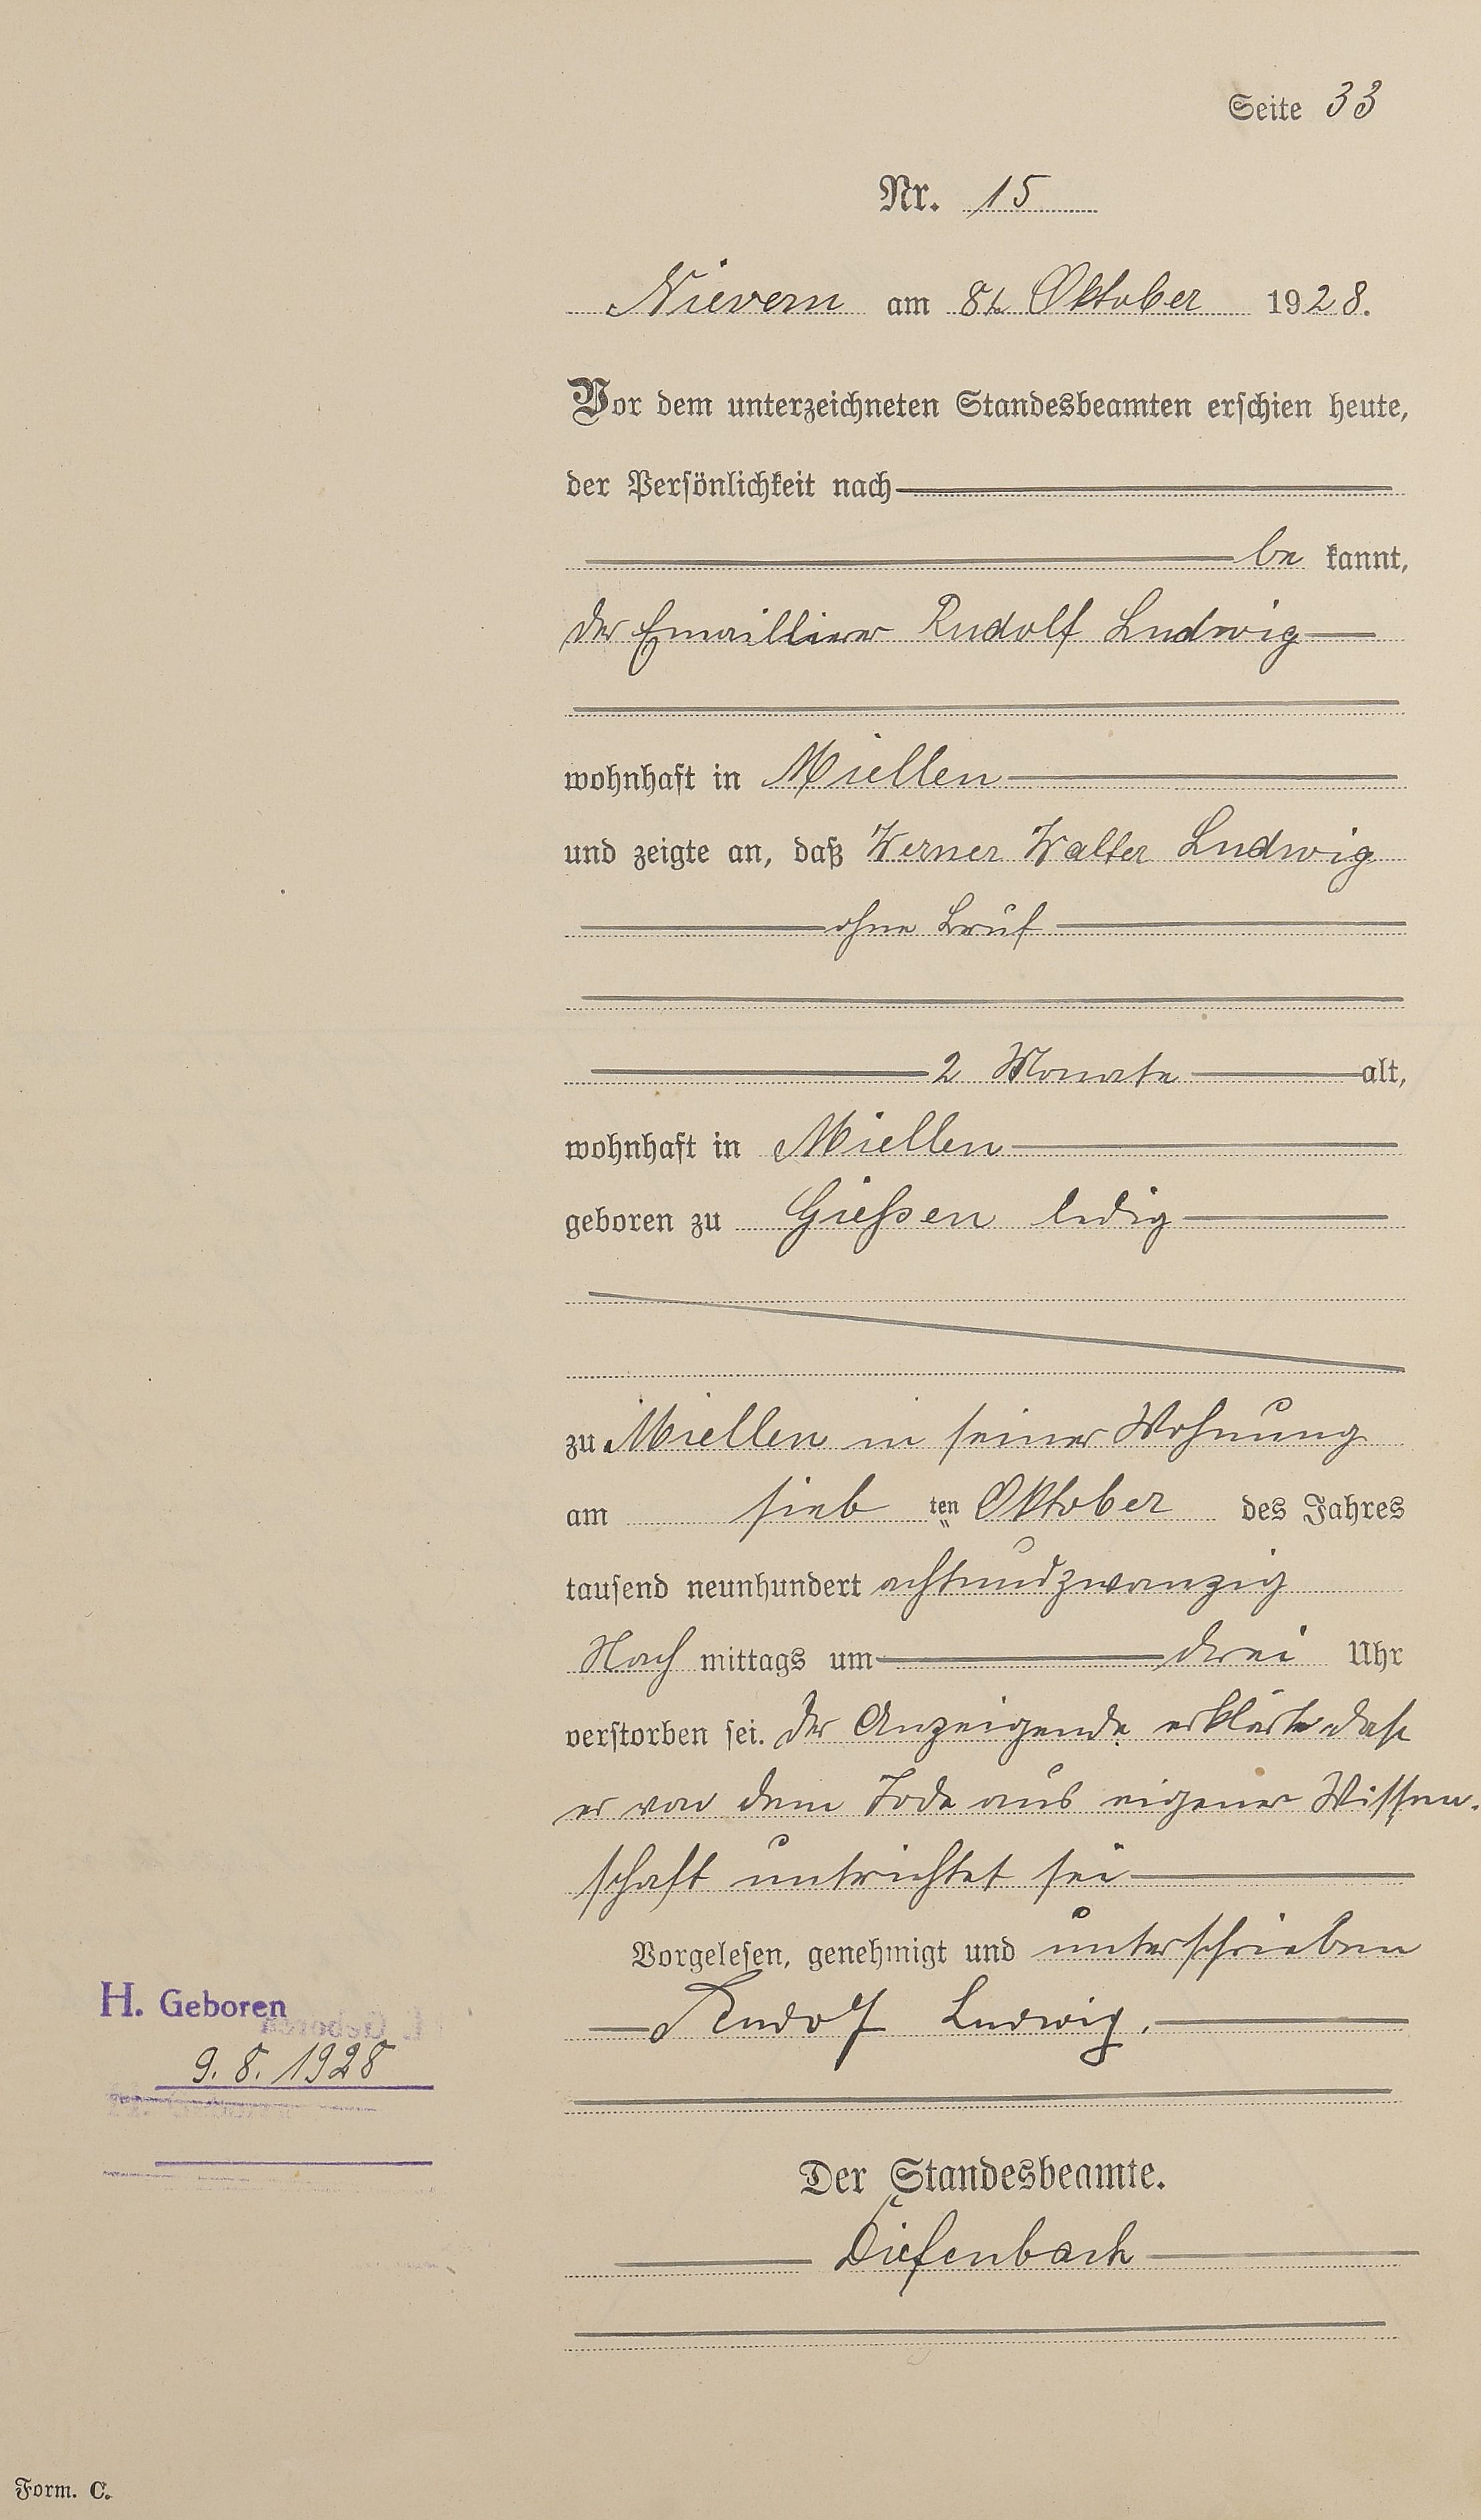 Seite 33
Nr. 15
Nievern am 8ten Oktober 1928.
Vor dem unterzeichneten Standesbeamten erschien heute,
der Persönlichkeit nach
be kannt,
der Emaillierer Rudolf Ludwig
wohnhaft in Miellen
und zeigte an, daß Werner Walter Ludwig
ohne Beruf
2 Monate alt,
wohnhaft in Miellen
geboren zu Gießen ledig
zu Miellen in seiner Wohnung
am sieb ten Oktober des Jahres
tausend neunhundert achtundzwanzig
Nach mittags um drei Uhr
verstorben sei. Der Anzeigende erklärte daß
er von dem Tode aus eigener Wissen-
schaft untrichtet sei
Vorgelesen, genehmigt und unterschrieben
Rudolf Ludwig.
H. Geboren
9. 8. 1928
Der Standesbeamte.
Diefenbach
Form. C.